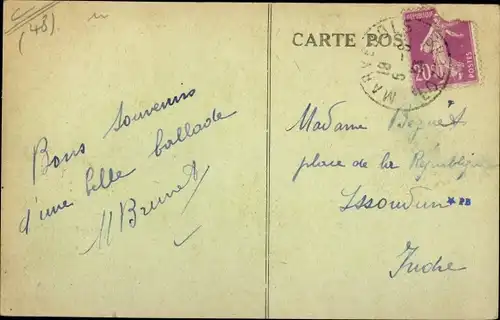 (48)
CARTE POS
MARVEJOLS
20c
POSTES
Bons souvenirs
d'une belle ballade
M Brunet
Madame
place de la République
Issoudun
PB
Indre